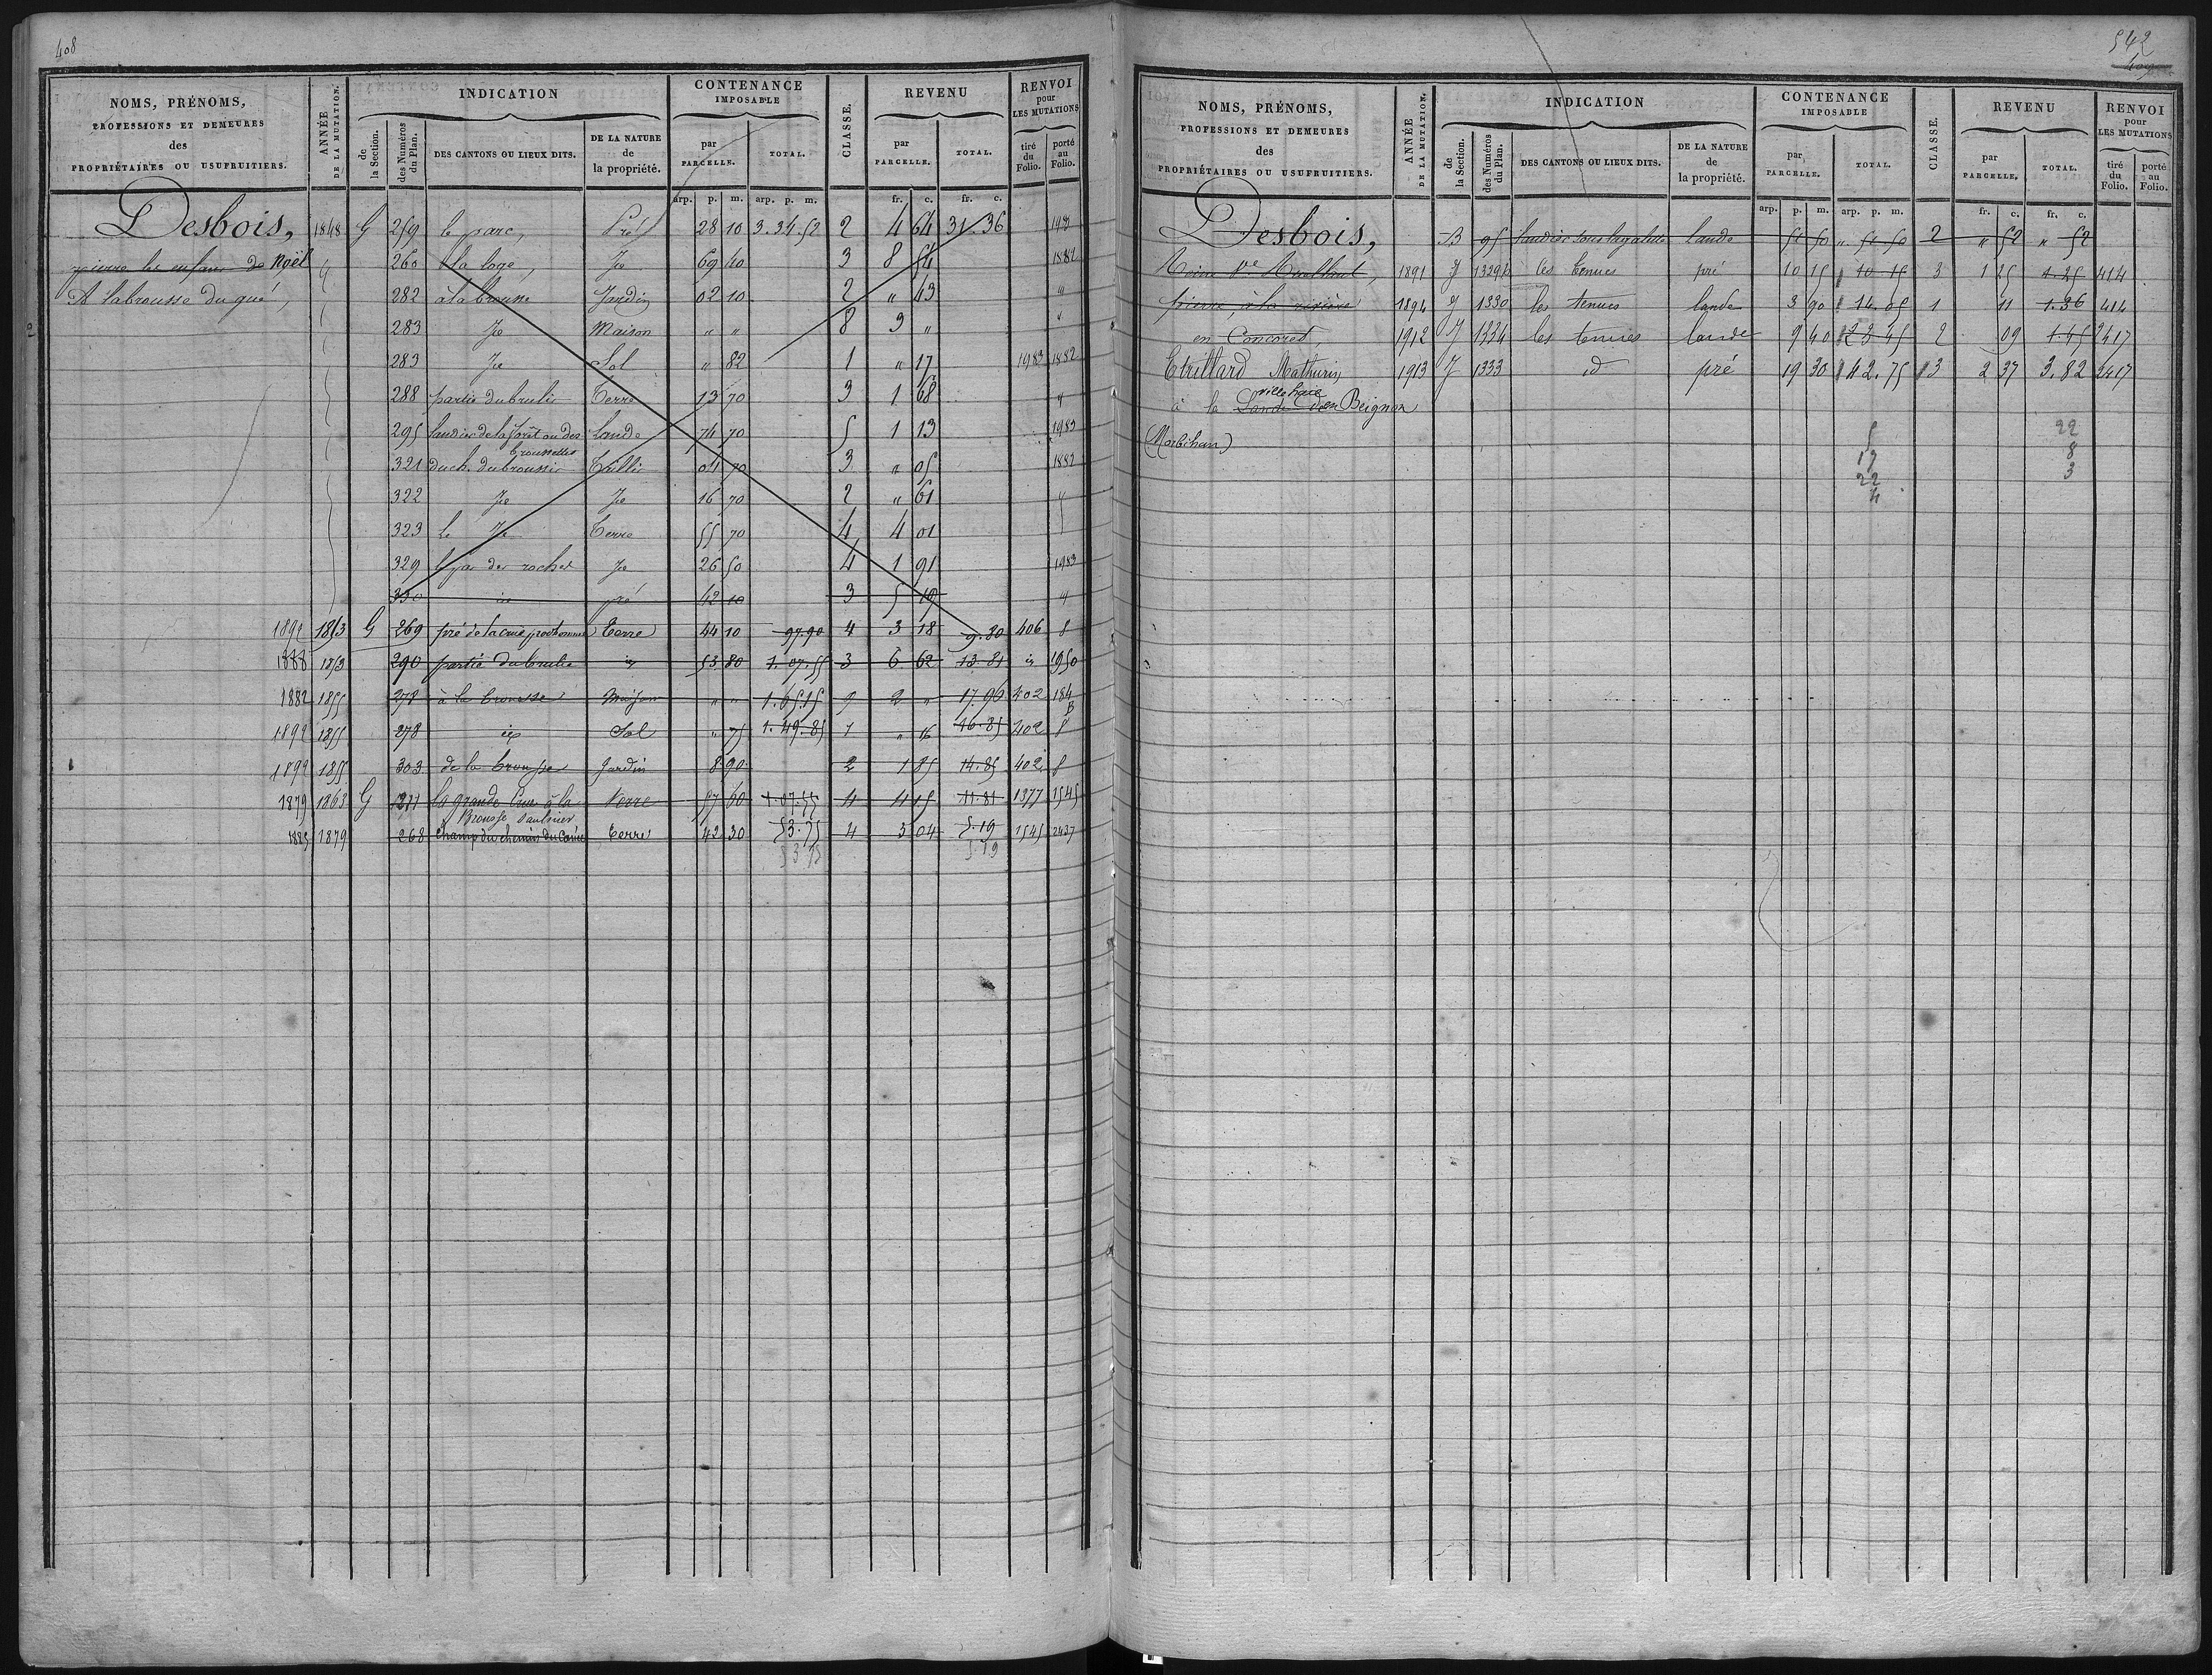 408
NOMS, PRÉNOMS, PROFESSIONS ET DEMEURES des PROPRIÉTAIRES OU USUFRUITIERS.
ANNÉE DE LA MUTATION.
INDICATION
de la Section.
des Numéros du Plan.
DES CANTONS OU LIEUX DITS.
DE LA NATURE de la propriété.
CONTENANCE IMPOSABLE
par PARCELLE.
TOTAL.
CLASSE.
REVENU
par PARCELLE.
TOTAL.
RENVOI pour LES MUTATIONS
tiré du Folio.
porté au Folio.
arp. p. m. arp. p. m. fr. c. fr. c.
Desbois, 1848 G 259 le parc, Pré 28 10 3.34.52 2 4 64 31.36
pierre les enfans de Noël 260 la loge, Jd 69 40 3 8 54 1882
A labrousse du gué, 282 à la brousse Jardin 02 10 2 " 43 "
283 Jd Maison " " 8 9 " "
283 Jd Sol " 82 1 " 17 1983 1882
288 partie du brulis Terre 13 70 3 1 68 "
295 landier de la forêt ou des broussettes Lande 74 70 5 1 13 1983
321 duch. du broussis 04 70 3 " 05 1882
322 Jd Jd 16 70 2 " 61 "
323 le Jd Terre 55 70 4 4 01
329 des roches Jd 26 50 4 1 91 1983
330 id pré 42 10 3 5 "
1892 1853 G 269 pré de la crue Terre 44 10 97.90 4 3 18 9.80 406 8
1888 1853 290 partie du brulis id 53 80 1.07.55 3 6 62 13.81 id 1950
1882 1855 278 à la brousse Maison " " 1.65.15 9 2 " 17.96 402 184 B
1892 1855 278 id Sol " 75 1.49.85 1 " 16 46.85 402 8
1892 1855 303 de la brousse Jardin 8 90 2 1 85 14.85 402 8
1879 1863 G la grande Crue à la Brousse Terre 57 60 1.07.55 4 4 15 11.81 1377 1545
1885 1879 268 Champ du chemin du Terre 42 30 53.75 4 3 04 5.19 1545 2437
53 75 5.19
542
409
NOMS, PRÉNOMS, PROFESSIONS ET DEMEURES des PROPRIÉTAIRES OU USUFRUITIERS.
ANNÉE DE LA MUTATION.
INDICATION
de la Section.
des Numéros du Plan.
DES CANTONS OU LIEUX DITS.
DE LA NATURE de la propriété.
CONTENANCE IMPOSABLE
par PARCELLE.
TOTAL.
CLASSE.
REVENU
par PARCELLE.
TOTAL.
RENVOI pour LES MUTATIONS
tiré du Folio.
porté au Folio.
arp. p. m. arp. p. m. fr. c. fr. c.
Desbois, B 95 landier sous lande 51 50 " 51 50 2 " 52 " 52
1891 J les tenues pré 10 15 10 15 3 1 25 1.25 414
pierre, à la rivière 1894 J 1330 les tenues lande 3 90 14.05 1 11 1.36 414
en Concoret, 1912 J 1334 les tenues lande 9 40 23 45 2 09 1.45 2417
Etrillard Mathurin 1913 J 1333 id pré 19 30 42.75 3 2 37 3.82 2417
à la Lande ville haie en Beignon
(Morbihan)
5 22
19 8
22 3
4